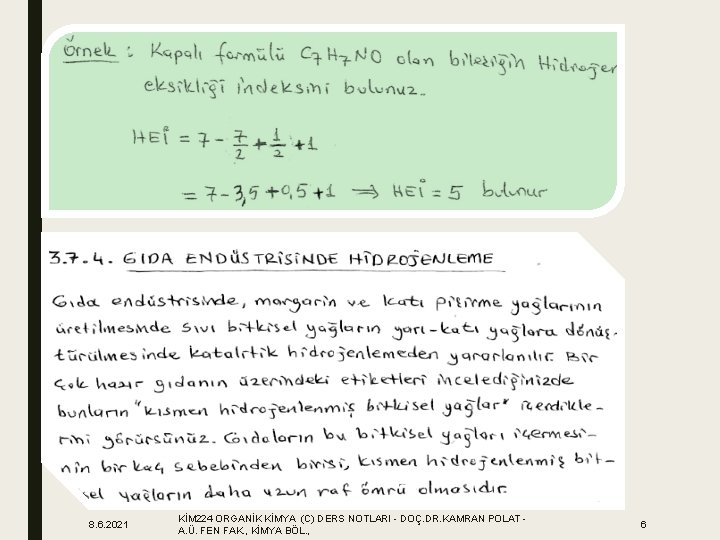 Örnek : Kapalı formülü C7H7NO olan bileşiğin Hidrojen
eksikliği indeksini bulunuz.
HEİ = 7 - 7/2 + 1/2 + 1
= 7 - 3,5 + 0,5 + 1 ⟹ HEİ = 5 bulunur
3.7.4. GIDA ENDÜSTRİSİNDE HİDROJENLEME
Gıda endüstrisinde, margarin ve katı pişirme yağlarının
üretilmesinde sıvı bitkisel yağların yarı-katı yağlara dönüş-
türülmesinde katalitik hidrojenlemeden yararlanılır. Bir
çok hazır gıdanın üzerindeki etiketleri incelediğinizde
bunların "kısmen hidrojenlenmiş bitkisel yağlar" içerdikle-
rini görürsünüz. Gıdaların bu bitkisel yağları içermesi-
nin bir kaç sebebinden birisi, kısmen hidrojenlenmiş bit-
sel yağların daha uzun raf ömrü olmasıdır.
8.6.2021
KİM224 ORGANİK KİMYA (C) DERS NOTLARI - DOÇ.DR.KAMRAN POLAT -
A.Ü. FEN FAK., KİMYA BÖL.,
6